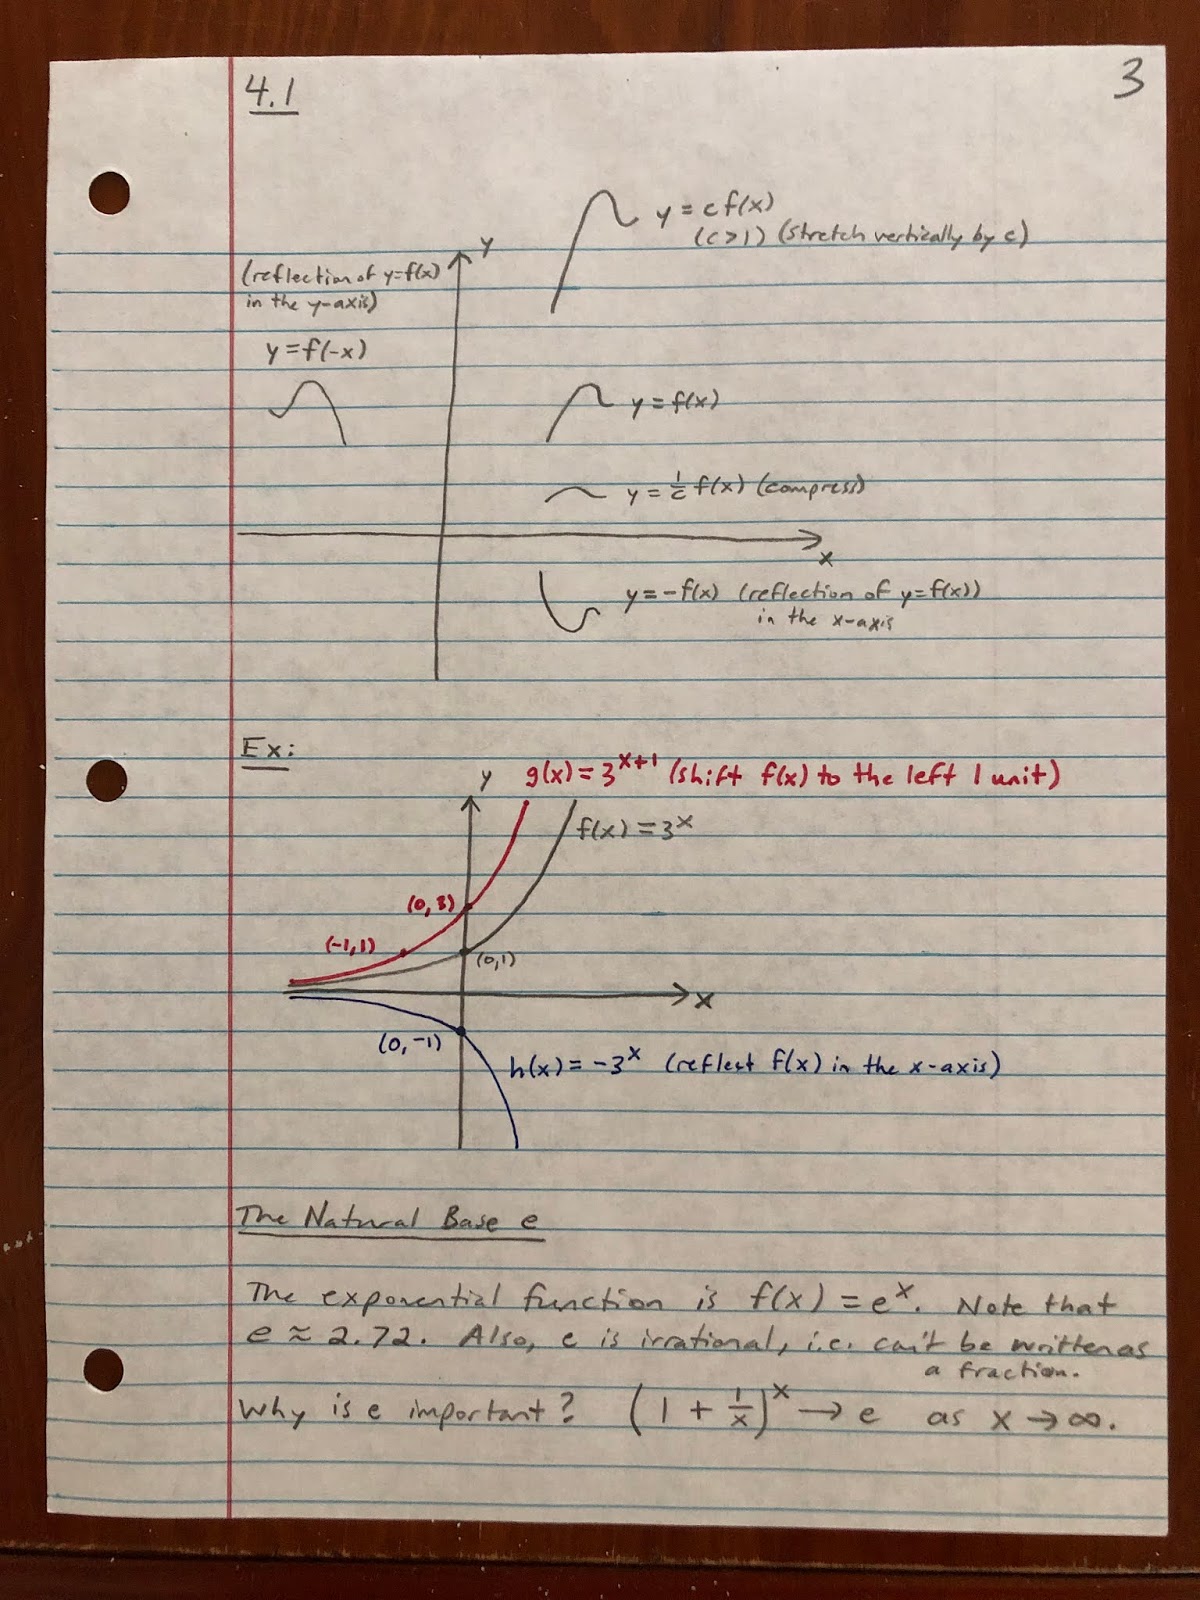 4.1
3
y = c f(x)
(c>1) (stretch vertically by c)
y
(reflection of y=f(x)
in the y-axis)
y=f(-x)
y=f(x)
y = 1/c f(x) (compress)
x
y=-f(x) (reflection of y=f(x))
in the x-axis
Ex:
y
g(x)=3^{x+1} (shift f(x) to the left 1 unit)
f(x)=3^x
(0,3)
(-1,1)
(0,1)
x
(0,-1)
h(x)=-3^x (reflect f(x) in the x-axis)
The Natural Base e
The exponential function is f(x)=e^x. Note that
e≈2.72. Also, e is irrational, i.e. can't be written as
a fraction.
Why is e important? (1+1/x)^x → e as x → ∞.